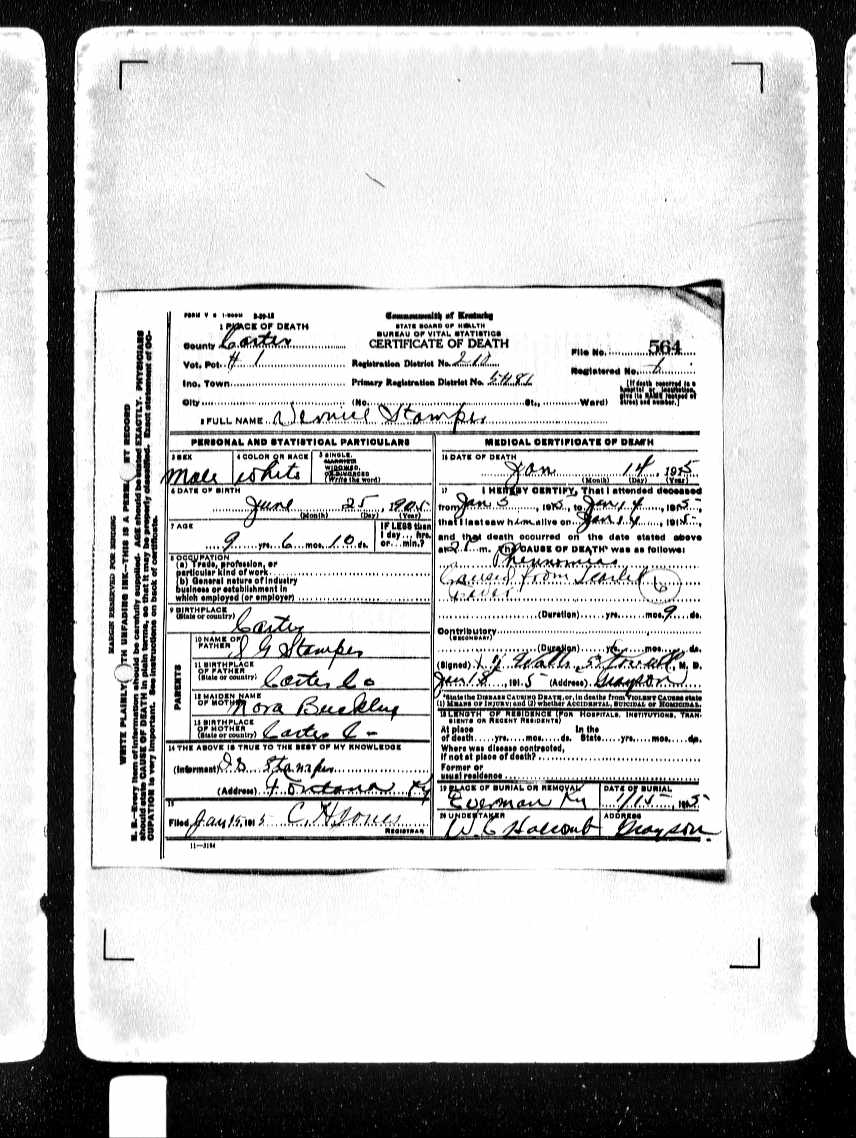 FORM V S 1-200M 3-20-12
Commonwealth of Kentucky
STATE BOARD OF HEALTH
BUREAU OF VITAL STATISTICS
CERTIFICATE OF DEATH
1 PLACE OF DEATH
County Carter
Vot. Pct. # 1
Inc. Town
City (No. St., Ward)
Registration District No. 218
Primary Registration District No. 5481
File No. 564
Registered No. 6
(If death occurred in a hospital or institution, give its NAME instead of street and number.)
2 FULL NAME Vernice Stamper
PERSONAL AND STATISTICAL PARTICULARS
3 SEX Male
4 COLOR OR RACE White
5 SINGLE, MARRIED WIDOWED, OR DIVORCED (Write the word)
6 DATE OF BIRTH June 25, 1905
(Month) (Day) (Year)
7 AGE 9 yrs. 6 mos. 10 ds.
IF LESS than 1 day... hrs. or... min.?
8 OCCUPATION
(a) Trade, profession, or particular kind of work
(b) General nature of industry business or establishment in which employed (or employer)
9 BIRTHPLACE (State or country) Carter
PARENTS
10 NAME OF FATHER Stamper
11 BIRTHPLACE OF FATHER (State or country) Carter Co
12 MAIDEN NAME OF MOTHER Nora
13 BIRTHPLACE OF MOTHER (State or country) Carter
14 THE ABOVE IS TRUE TO THE BEST OF MY KNOWLEDGE
(Informant) Stamper
(Address) Fontana Ky
15
Filed Jan 15, 1915 C. H Jones
REGISTRAR
11-3184
MEDICAL CERTIFICATE OF DEATH
16 DATE OF DEATH
Jan 14, 1915
(Month) (Day) (Year)
17 I HEREBY CERTIFY, That I attended deceased
from Jan 5, 1915, to Jan 14, 1915,
that I last saw him alive on Jan 14, 1915,
and that death occurred on the date stated above
at m. The CAUSE OF DEATH* was as follows:
Pheunomia
Caused from Scarlet 6
Fever
(Duration) yrs. mos. 9 ds.
Contributory
(SECONDARY)
(Duration) yrs. mos. ds.
(Signed) M. D.
Jan 18, 1915 (Address) Grayson
*State the DISEASE CAUSING DEATH, or, in deaths from VIOLENT CAUSES state (1) MEANS OF INJURY; and (2) whether ACCIDENTAL, SUICIDAL or HOMICIDAL.
18 LENGTH OF RESIDENCE (FOR HOSPITALS, INSTITUTIONS, TRANSIENTS OR RECENT RESIDENTS)
At place of death yrs. mos. ds. In the State yrs. mos. ds.
Where was disease contracted, if not at place of death?
Former or usual residence
19 PLACE OF BURIAL OR REMOVAL Everman Ky
DATE OF BURIAL 1/15 1915
20 UNDERTAKER W. C Holcomb
ADDRESS Grayson
MARGIN RESERVED FOR BINDING
WRITE PLAINLY WITH UNFADING INK—THIS IS A PERM RECORD
N. B.—Every item of information should be carefully supplied. AGE should be stated EXACTLY. PHYSICIANS should state CAUSE OF DEATH in plain terms, so that it may be properly classified. Exact statement of OCCUPATION is very important. See instructions on back of certificate.